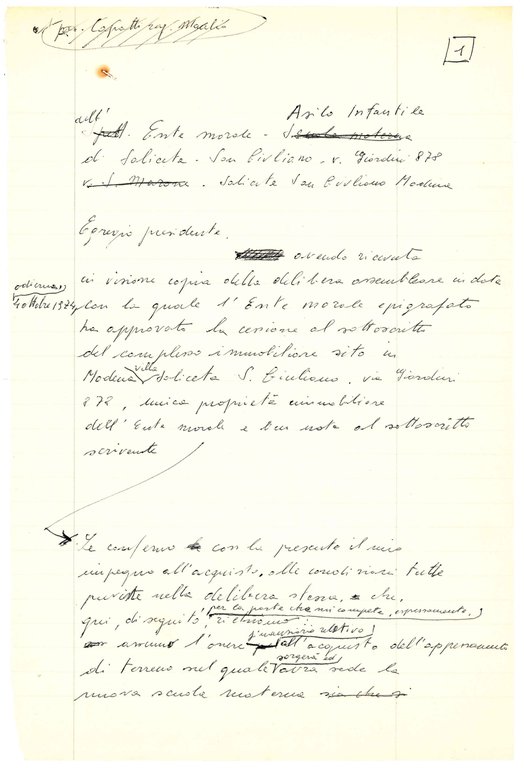 per. Capatti rag. Medelio
1
dell' Asilo Infantile
Ente morale. Scuola materna
di Saliceta. San Giuliano. v. Giardini 878
v. S. Marone. Saliceta San Giuliano Modena
Egregio presidente.
avendo ricevuto
in visione copia della delibera assembleare in data
odierna,
4 ottobre 1974, con la quale l'Ente morale epigrafato
ha approvato la cessione al sottoscritto
del complesso immobiliare sito in
Modena villa Saliceta S. Giuliano, via Giardini
878, unica proprietà immobiliare
dell'Ente morale e ben nota al sottoscritto
scrivente
Le confermo con la presente il mio
impegno all'acquisto, alle condizioni tutte
previste nella delibera stessa, e che,
qui, di seguito, per la parte che mi compete, espressamente,
assumo l'onere finanziario relativo all'acquisto dell'appezzamento
di terreno nel quale sorgerà ed avrà sede la
nuova scuola materna sia che si